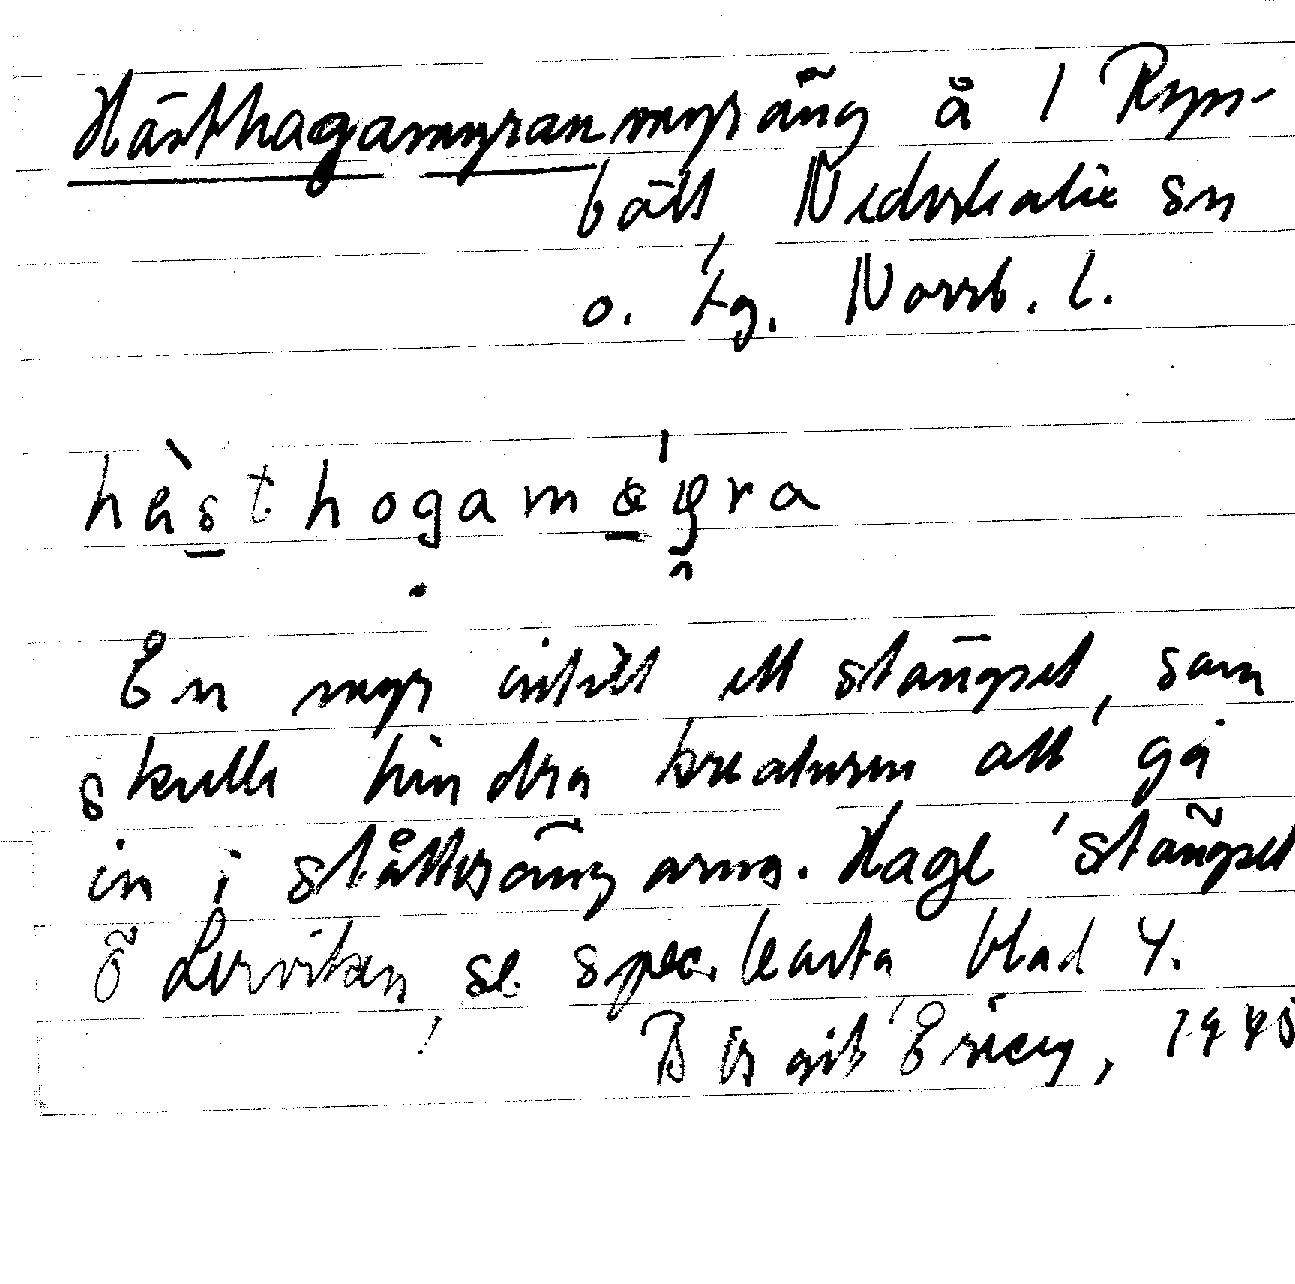 Hästhagamyran myräng å 1 Ryss-
bält, Nederkalix sn
o. tg. Norrb. l.
hästhogamøyra
En myr intill ett stängsel, som
skulle hindra kreaturen att gå
in i slåtterängarna. Hage 'stängsel'
Ö Lerviken, se spec. karta blad 4.
Birgit Ericy, 1945